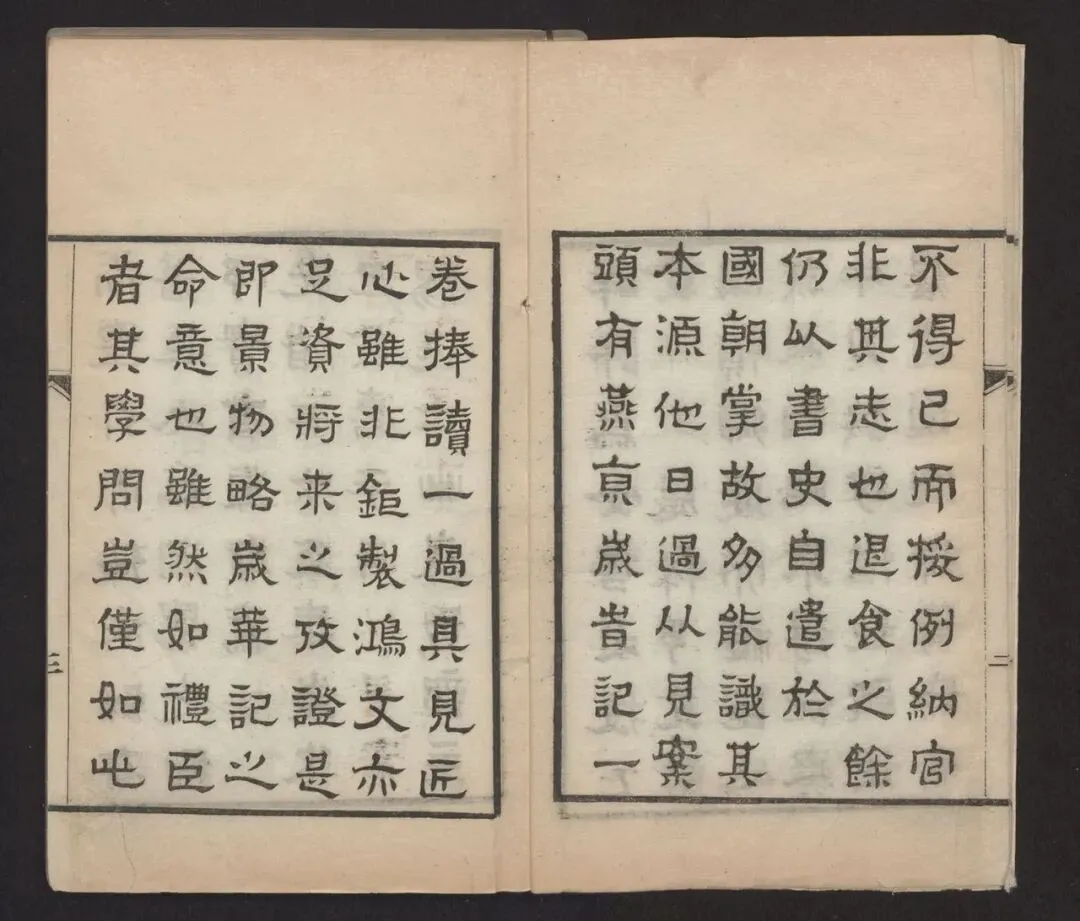 不得已而援例納官
非其志也退食之餘
仍以書史自遣於
國朝掌故多能識其
本源他日過從見案
頭有燕京嵗旹記一
二
卷捧讀一過具見匠
心雖非鉅製鴻文亦
足資將来之攷證是
即景物略嵗華記之
命意也雖然如禮臣
者其學問豈僅如此
三